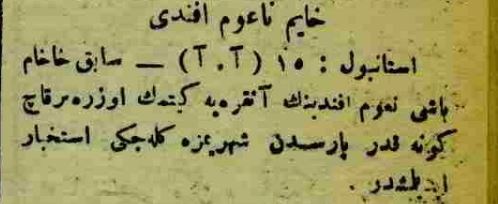 خايم ناعوم افندى
استانبول : ١٥ (آ . آ) — سابق خاخام
باشى نعوم افندينك آنقره‌يه كيتمك اوزره برقاچ
كونه قدر پارسدن شهريمزه كله‌جكى استخبار
ايدلمشدر .